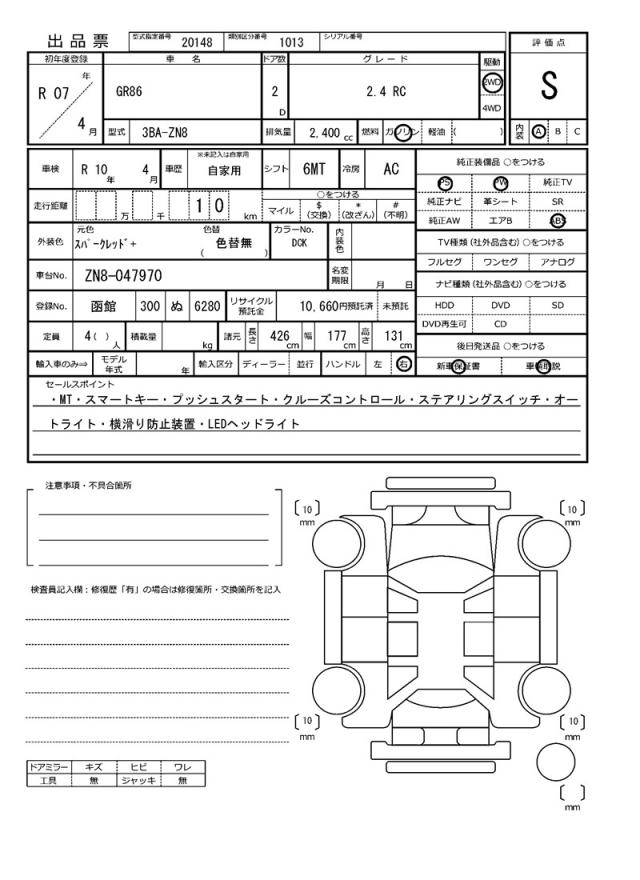 出品票 型式指定番号 20148 類別区分番号 1013 シリアル番号
評価点
初年度登録 車名 ドア数 グレード 駆動
R 07 年 GR86 2 D 2.4 RC 2WD S
4WD
4 月 型式 3BA-ZN8 排気量 2,400 cc 燃料 ガソリン 軽油 ( ) 内装 A B C
車検 R 10 年 4 月 車歴 ※未記入は自家用 自家用 シフト 6MT 冷房 AC 純正装備品 ○をつける
PS PW 純正TV
走行距離 万 千 1 0 km ○をつける 純正ナビ 革シート SR
マイル $ (交換) * (改ざん) # (不明) 純正AW エアB ABS
外装色 元色 スパークレッド+ 色替 ( 色替無 ) カラーNo. DCK 内装色 TV種類 (社外品含む) ○をつける
フルセグ ワンセグ アナログ
車台No. ZN8-047970 名変期限 月 日 ナビ種類 (社外品含む) ○をつける
登録No. 函館 300 ぬ 6280 リサイクル預託金 10,660円預託済 未預託 HDD DVD SD
DVD再生可 CD
定員 4( ) 人 積載量 kg 諸元 長さ 426 cm 幅 177 cm 高さ 131 cm 後日発送品 ○をつける
輸入車のみ⇒ モデル年式 年 輸入区分 ディーラー 並行 ハンドル 左 右 新車保証書 車輌取説
セールスポイント
・MT・スマートキー・プッシュスタート・クルーズコントロール・ステアリングスイッチ・オー
トライト・横滑り防止装置・LEDヘッドライト
注意事項・不具合箇所
[10] mm [10] mm
検査員記入欄：修復歴「有」の場合は修復箇所・交換箇所を記入
[10] mm [10] mm
ドアミラー キズ ヒビ ワレ
工具 無 ジャッキ 無
[ ] mm